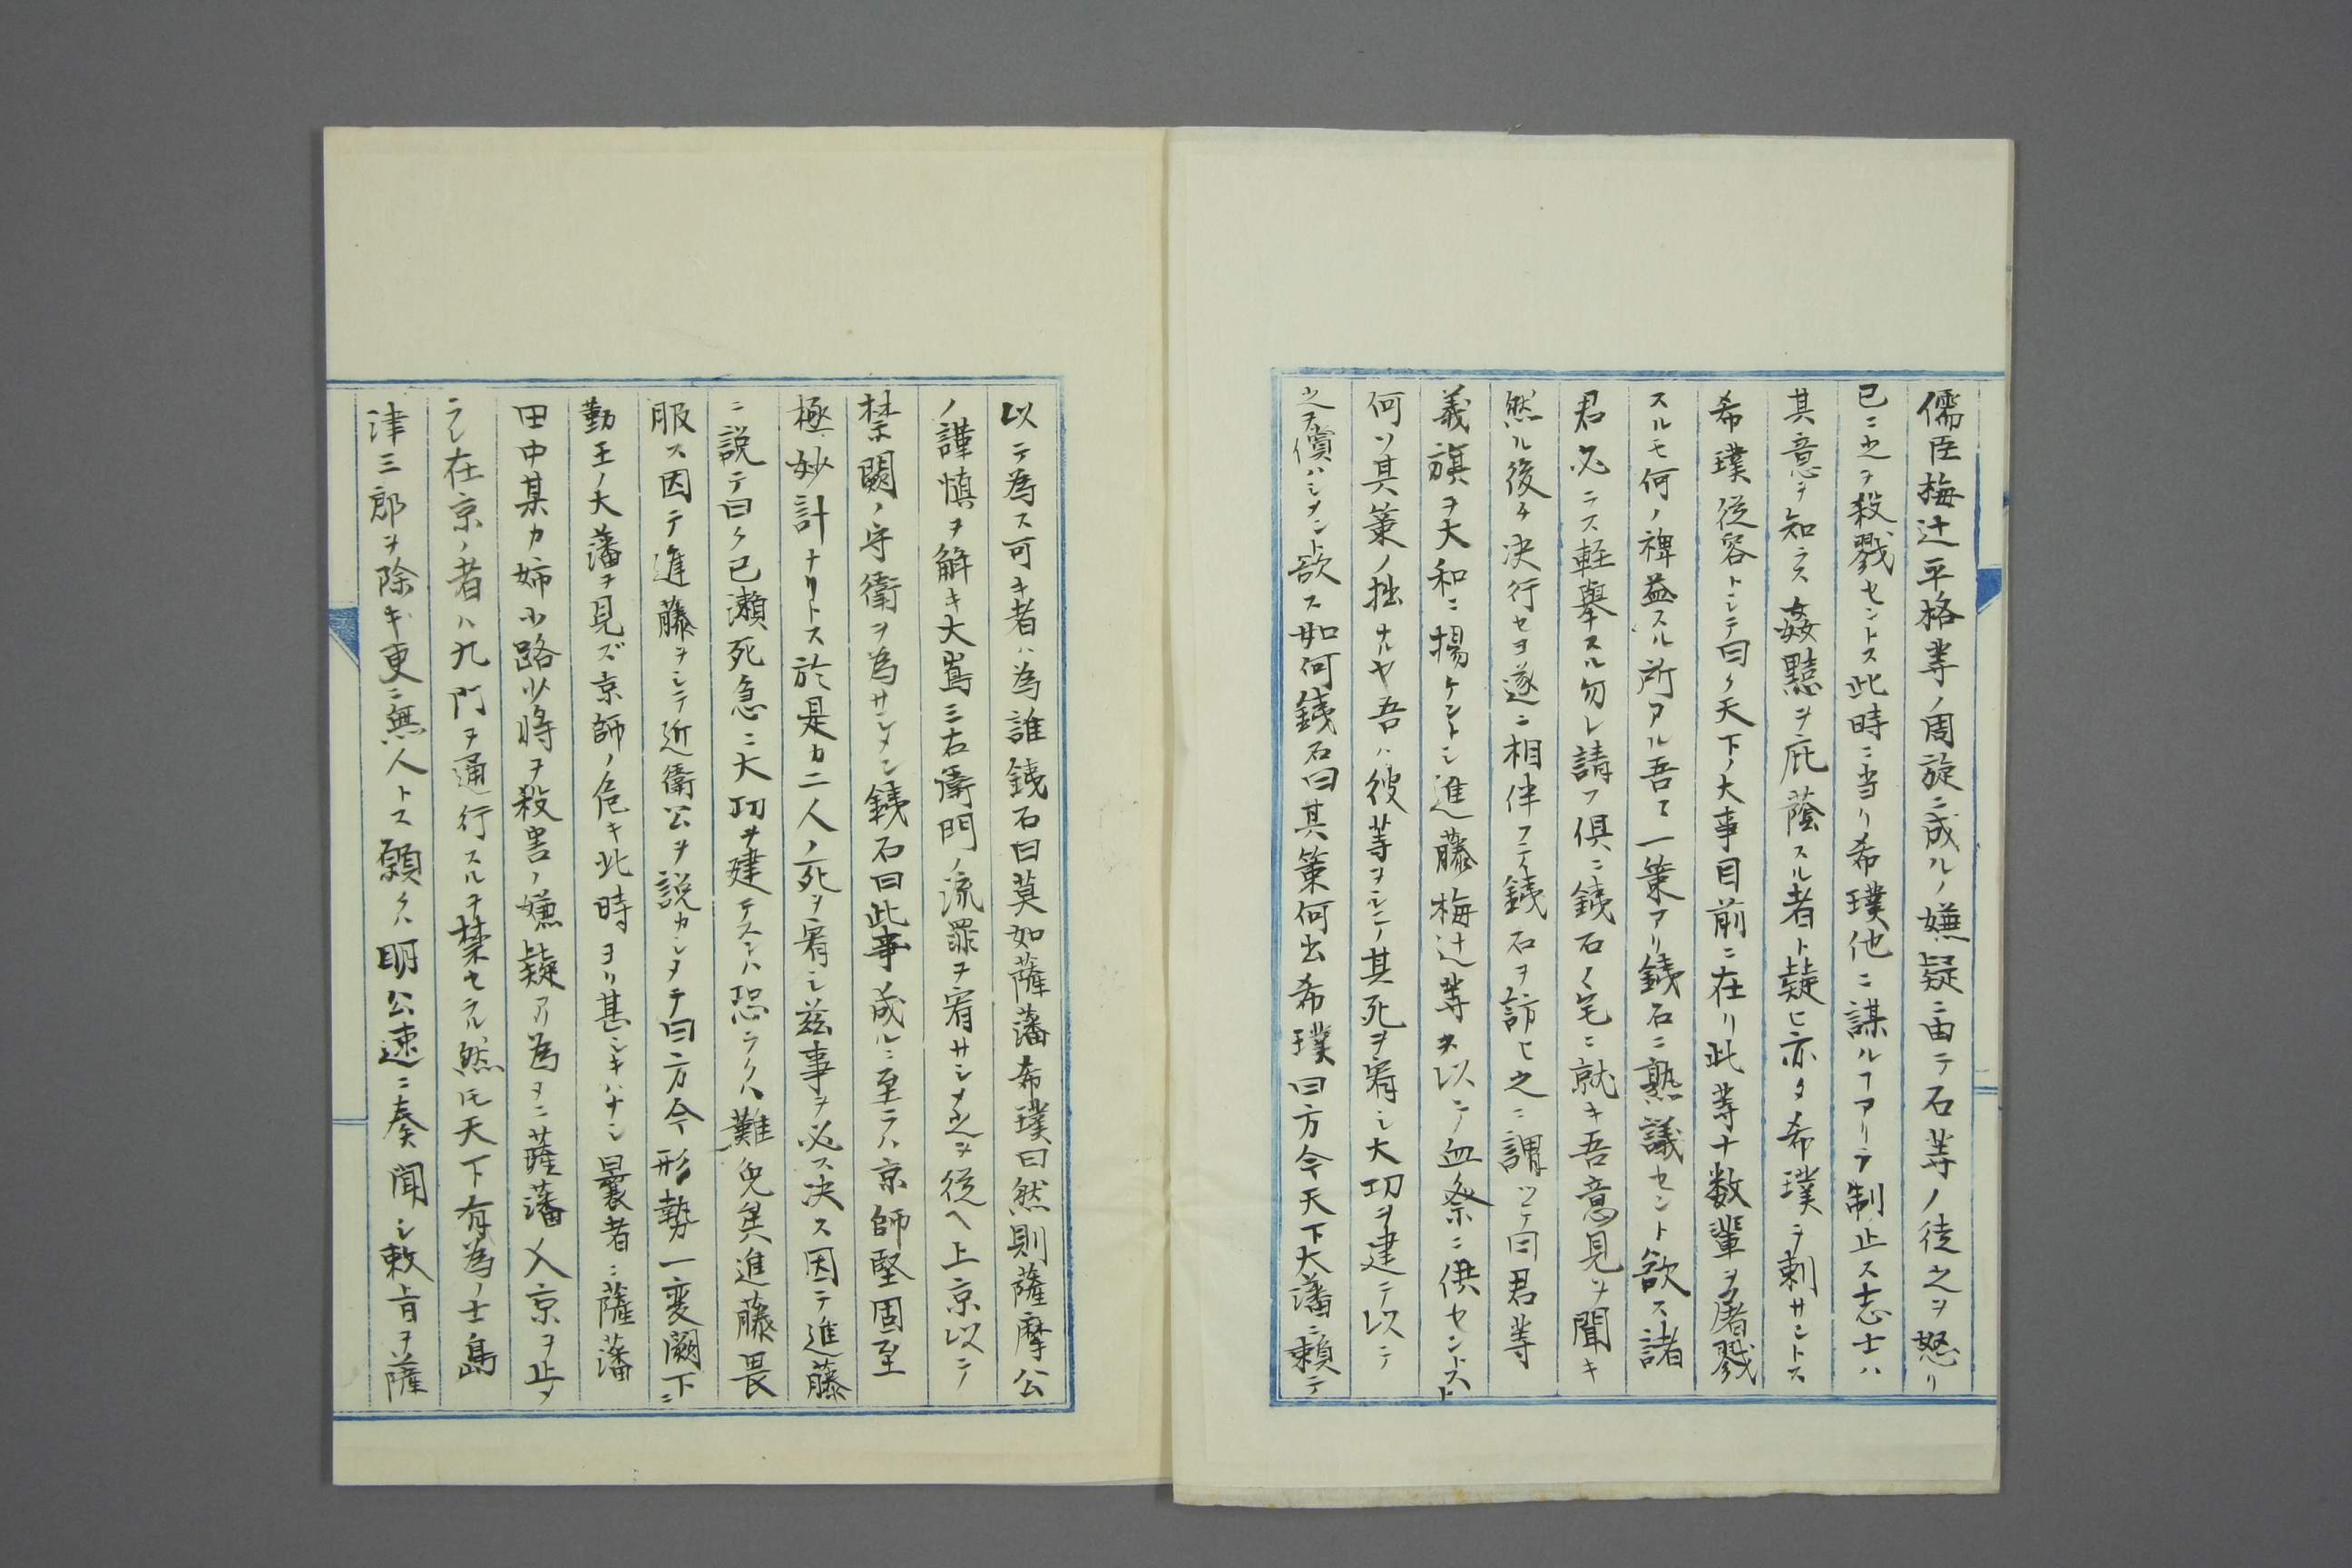 儒臣梅辻平格等ノ周旋ニ成ルノ嫌疑ニ由テ石等ノ徒之ヲ怒リ
已ニ之ヲ殺戮セントス此時ニ当リ希璞他ニ謀ルヿアリテ制止ス志士ハ
其意ヲ知ラス姦黠ヲ庇蔭スル者ト疑ヒ亦タ希璞ヲ刺サントス
希璞従容トシテ曰ク天下ノ大事目前ニ在リ此等十数輩ヲ屠戮
スルモ何ノ裨益スル所アル吾ニ一策アリ銕石ニ熟議セント欲ス諸
君必テス軽挙スル勿レ請フ倶ニ銕石ノ宅ニ就キ吾意見ヲ聞キ
然ル後チ决行セヨ遂ニ相伴フテ銕石ヲ訪ヒ之ニ謂ツテ曰君等
義旗ヲ大和ニ揚ケントシ進藤梅辻等ヲ以テ血祭ニ供セントスト
何ソ其策ノ拙ナルヤ吾ハ彼等ヲシテ其死ヲ宥シ大功ヲ建テ以テ
之ヲ償ハシメント欲ス如何銕石曰其策何出希璞曰方今天下大藩ニ頼テ
以テ為ス可キ者ハ為誰銕石曰莫如薩藩希璞曰然則薩摩公
ノ謹慎ヲ解キ大嶌三右衛門ノ流罪ヲ宥サシメ之ヲ従ヘ上京以テ
禁闕ノ守衛ヲ為サシメン銕石曰此事成ルニ至ラハ京師堅固至
極妙計ナリトス於是カ二人ノ死ヲ宥シ茲事ヲ必ス决ス因テ進藤
ニ説テ曰ク已瀕死急ニ大功ヲ建テスンハ恐ラクハ難免矣進藤畏
服ス因テ進藤ヲシテ近衛公ヲ説カシメテ曰方今形勢一変闕下ニ
勤王ノ大藩ヲ見ズ京師ノ危キ此時ヨリ甚シキハナシ曩者ニ薩藩
田中某カ姉小路少将ヲ殺害ノ嫌疑アリ為ヲニ薩藩入京ヲ止メ
ラレ在京ノ者ハ九門ヲ通行スルヲ禁セラル然レ𪜈天下有為ノ士島
津三郎ヲ除キ更ニ無人トス願クハ明公速ニ奏聞シ敕旨ヲ薩